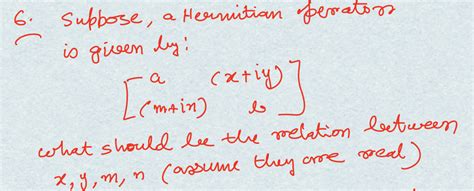 6. Suppose, a Hermitian operators
is given by:
[ a (x+iy) ]
[ (m+in) b ]
what should be the relation between
x, y, m, n (assume they are real)